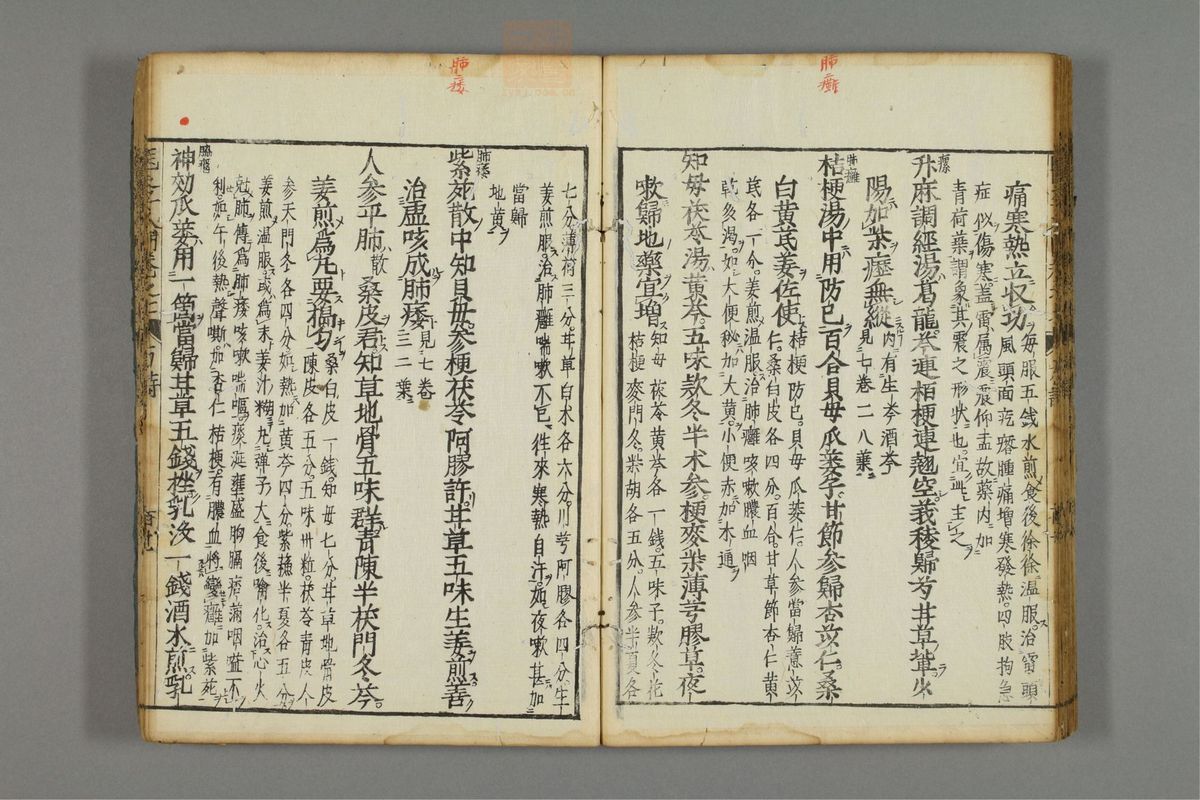 肺癰
痛寒熱立収功
毎服五戔水煎食後徐徐温服治雷頭
症似傷寒盖雷属震震仰盂故藥内加
風頭面疙瘩腫痛増寒發熱四肢拘急
青荷葉謂象其震之形状也宜此主之
瘰
升麻調經湯葛龍芩連栢梗連翹空莪稜歸芍甘草輩少
陽加柴瘂無縱
内有生芩酒芩
見七卷二八葉
肺癰
桔梗湯中用防巳百合貝母瓜蔞子甘節參歸杏苡仁桑
白黄芪姜佐使
桔梗防巳貝母瓜蔞仁人參當歸薏苡
仁桑白皮各四分百合甘草節杏仁黄
芪各一分姜煎温服治肺癰咳嗽膿血咽
乾多渴如大便秘加大黄小便赤加木通
知母茯苓湯黄芩五味款冬半术參梗麥柴薄芎膠草夜
嗽歸地藥宜増
知母茯苓黄芩各一錢五味子款冬花
桔梗麥門冬柴胡各五分人參半夏各
七分薄荷三分甘草白朮各六分川芎阿膠各四分生
姜煎服治肺癰喘嗽不已徃來寒熱自汗如夜嗽甚加
當歸
地黄
肺痿
肺痿
紫菀散中知貝母參梗茯苓阿膠許甘草五味生姜煎善
治虛咳成肺痿
見七卷
三二葉
人參平肺散桑皮君知草地骨五味群青陳半茯門冬芩
姜煎爲丸要搗勻
桑白皮一錢知母七分甘草地骨皮
陳皮各五分五味卅粒茯苓青皮人
參天門冬各四分如熱加黄芩四分紫蘇半夏各五分
姜煎温服或爲末姜汁糊丸弾子大食後噙化治心火
尅肺傳爲肺痿咳嗽喘嘔痰涎壅盛胸膈痞滿咽嗌不
利如午後熱聲嘶加杏仁桔梗有膿血將變癰加紫菀
腦癰
神効瓜蔞用一箇當歸甘草五錢挫乳没一錢酒水煎乳